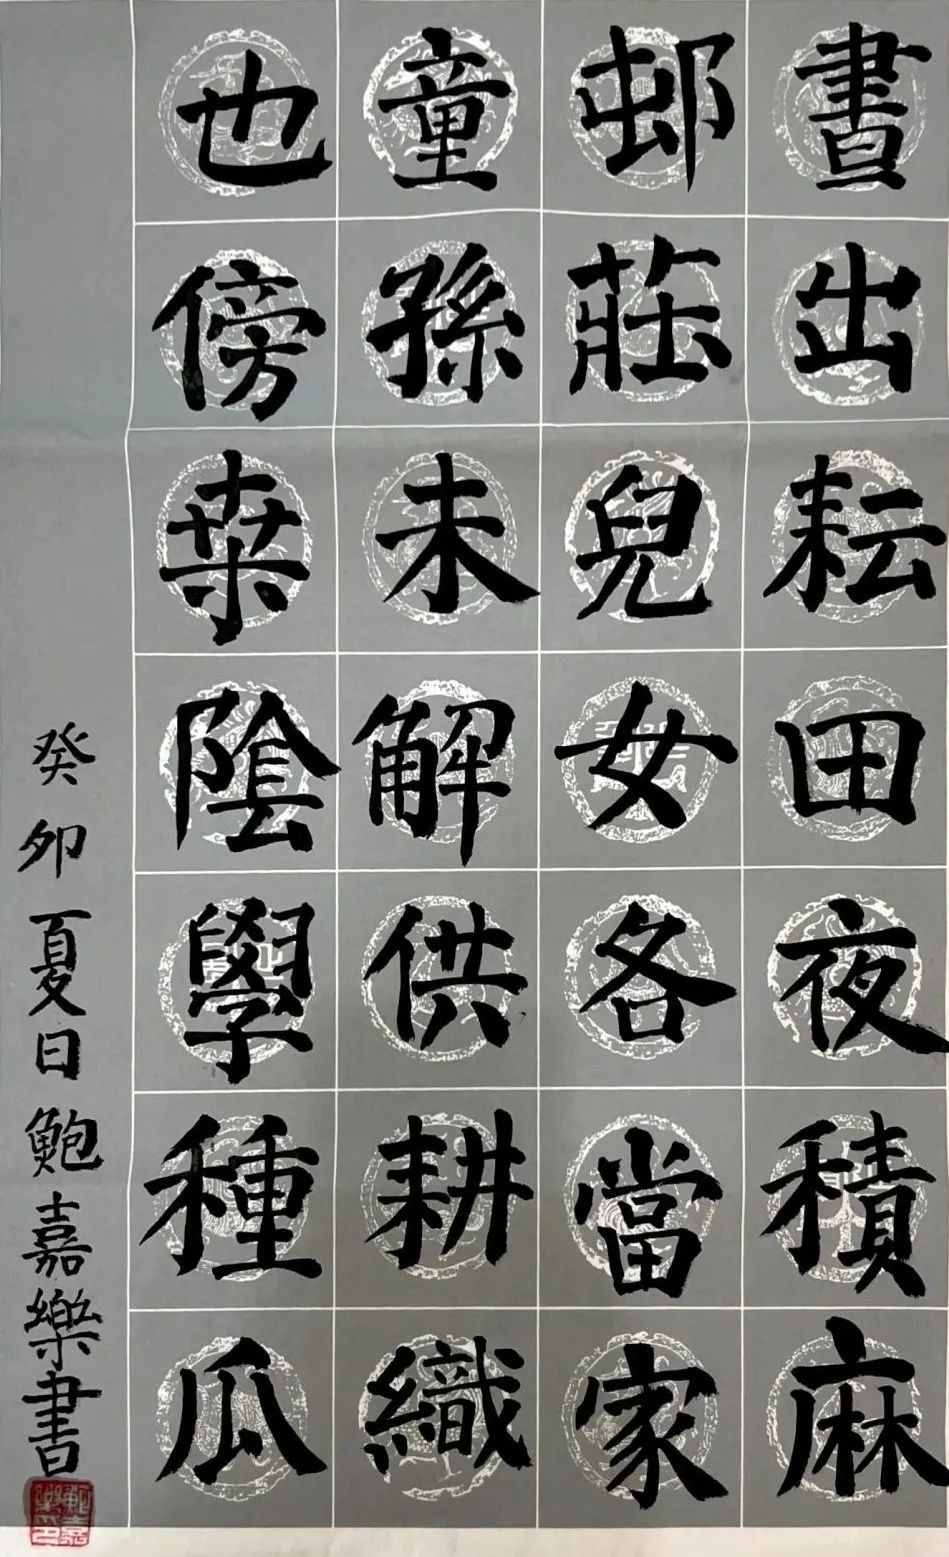 晝出耘田夜積麻
邨莊兒女各當家
童孫未解供耕織
也傍桒陰學種瓜
癸卯夏日鮑嘉樂書
鮑嘉
樂印